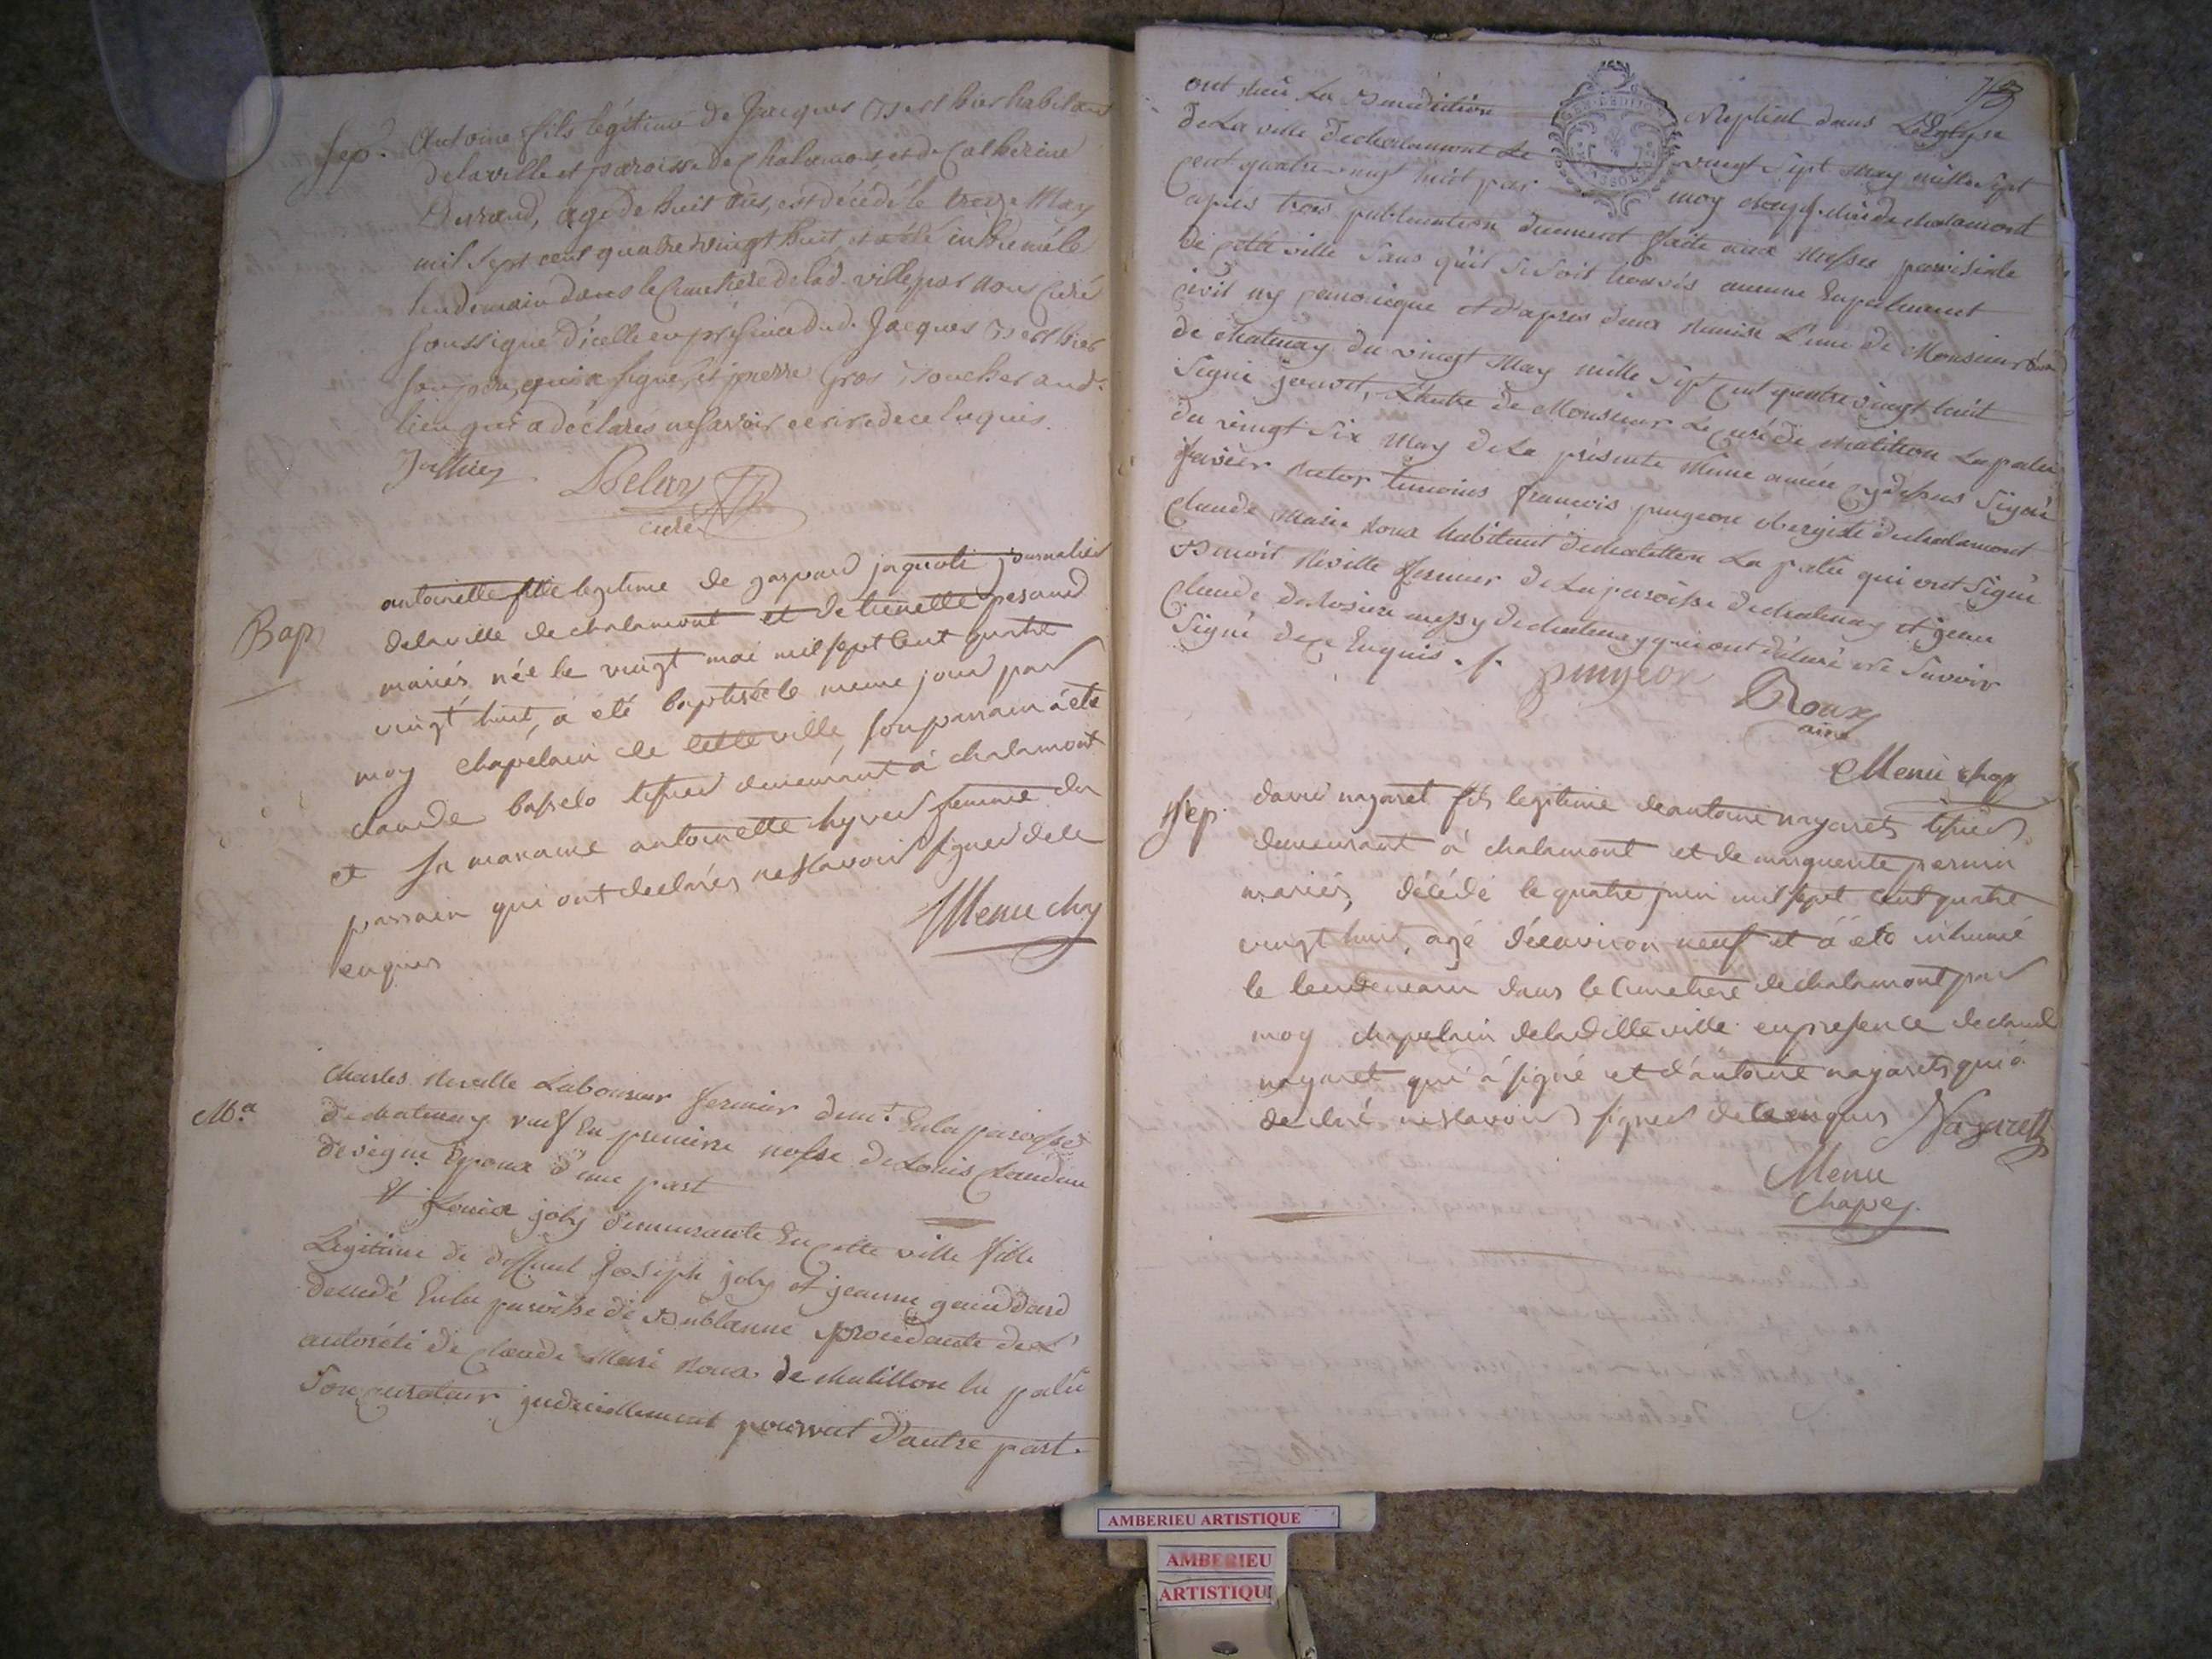 Sep.
Antoine fils légitime de Jacques Berthier habitant
de la ville et paroisse de Chalamont et de Catherine
agé de huit ans, est décédé le treize May
mil sept cent quatre vingt huit, et a été inhumé le
lendemain dans le Cimetière de lad. ville par nous Curé
soussigné d'icelle en présence dud. Jacques Berthier
son père, qui a signé, et pierre Gros Boucher aud.
lieu qui a déclarés ne savoir ecrire de ce enquis.
Delorz
curé
Bap
antoinette fille legitime de gaspard jaquoti journalier
de la ville de chalamont et de lienette pesand
mariés née le vingt mai mil sept cent quatre
vingt huit, a été baptisée le meme jour par
moy chapelain de cette ville, son parrain a ete
claude tissier demeurant à chalamont
et sa maraine antoinette hyver femme du
parrain qui ont declarés ne scavoir signer de ce
enquis
Menu chap
Ma
Charles Neville Laboureur fermier demt. En la paroisse
de chatenay veuf En premiere nosse de Louis Claudine
époux d'une part
Et Louise joly demeurante En cette ville fille
Légitime de deffunt Joseph joly et jeanne gauddard
deceidé En la paroisse de Bublanne procedante de L'
autoréti de Claude Marie Roux de chatillon la palu
Son curateur judiciellement pourvut d'autre part.
73
ont recu La Benediction Nuptial dans L'Eglise
de La ville de chalamont Le vingt Sept May mille Sept
cent quatre-vingt huit par moy chapelain de chalamont
après trois publication duement faite aux Messes paroisiale
de cette ville Sans qu'il Se Soit trouvés aucune Enpechement
civil ny canonique et d'apres deux Remise L'une de Monsieur
de chatenay du vingt May mille Sept Cent quatre vingt huit
Signé jouvet, L'autre de Monsieur Le curé de chatillon La palu
du vingt Six May de La présente Même année cy dessus Signé
favier Rector temoins francois pingeon obergiste de chalamont
Claude Marie Roux habitant de chatillon La palu qui ont Signé
Benoit Neville fermier de La paroisse de chatenay et jean
Claude de chatenay qui ont déclaré ne Savoir
Signé de ce Enquis ./.
pingeon
Roux
ainé
Menu chap
Sep.
david nazaret fils legitime de antoine nazaret tissier
demeurant à chalamont et de marguerite perrin
mariés, décédé le quatre juin mil sept cent quatre
vingt huit, agé d'environ neuf et a été inhumé
le lendemain dans le Cimetiere de chalamont par
moy chapelain de la ditte ville en presence de claude
nazaret qui a signé et d'antoine nazaret qui a
declaré ne scavoir signer de ce enquis Nazarett
Menu
chapel.
AMBERIEU ARTISTIQUE
AMBERIEU
ARTISTIQU